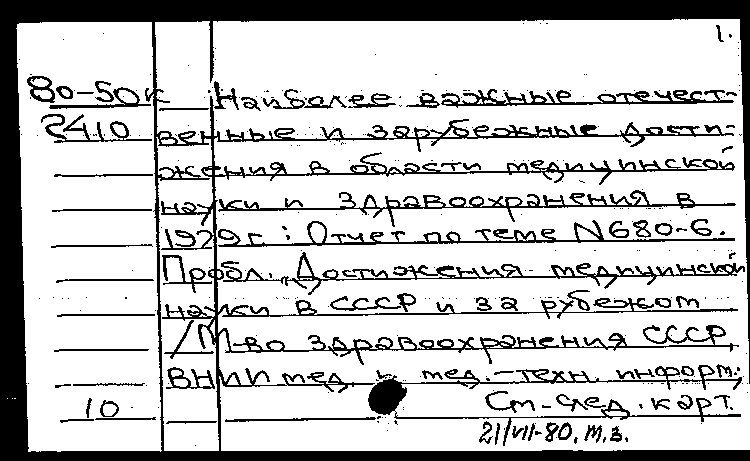 1.
80-50к Наиболее важные отечест-
2410 венные и зарубежные дости-
жения в области медицинской
науки и здравоохранения в
1979г.: Отчет по теме N680-6.
Пробл. „Достижения медицинской
науки в СССР и за рубежом
/М-во здравоохранения СССР,
ВНИИ мед. и мед.-техн. информ.;
10 См. след. карт.
21/VII-80. т.з.